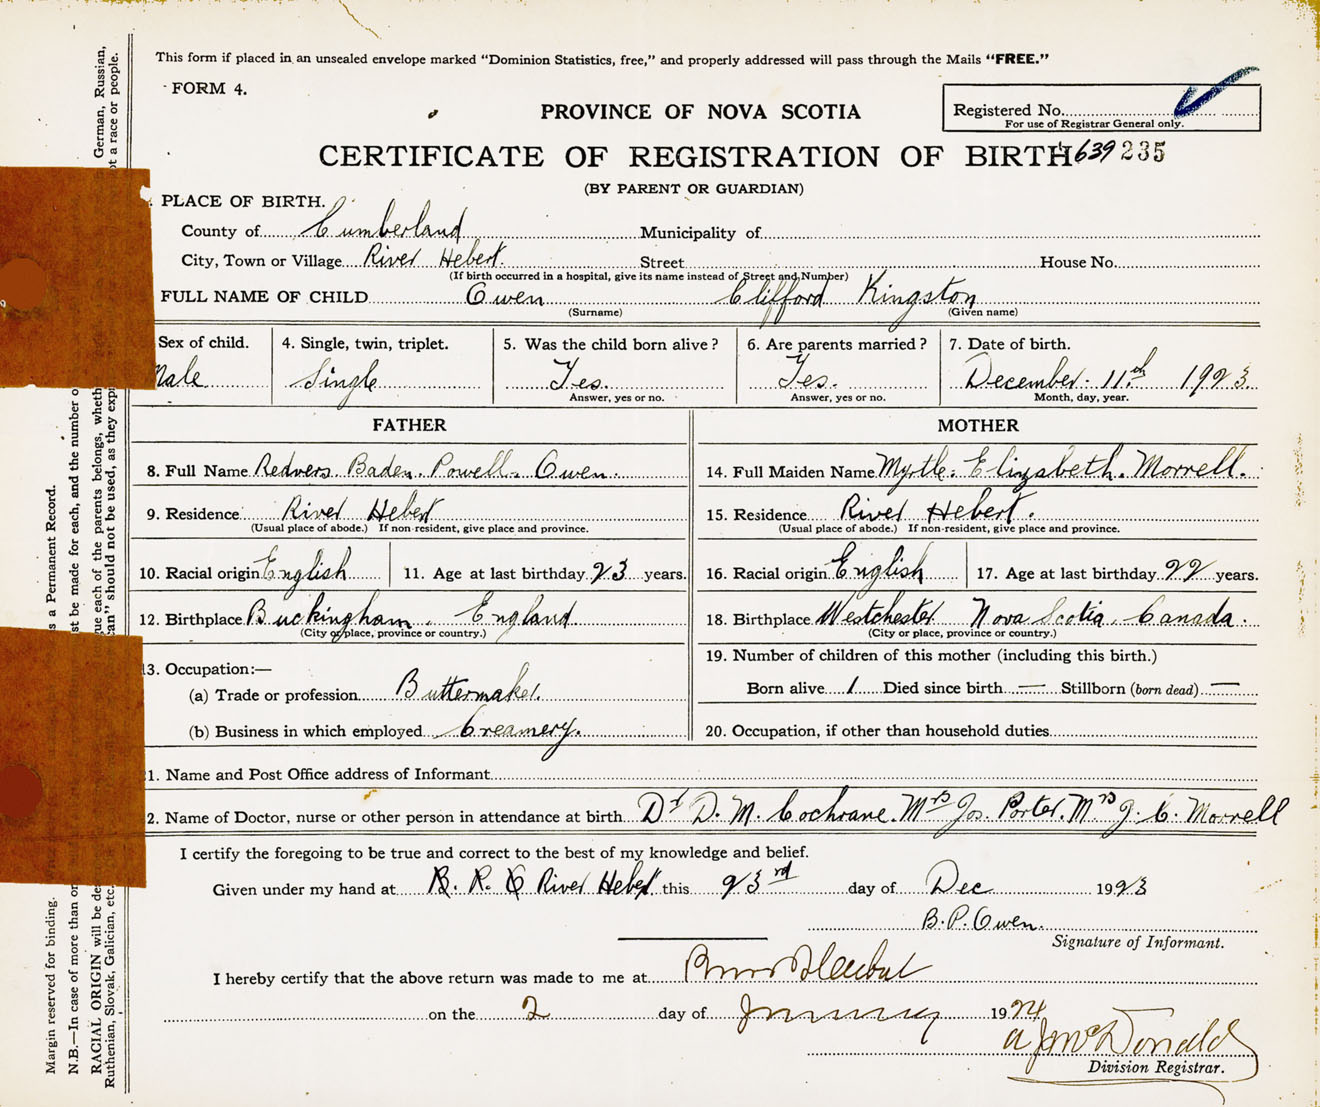 This form if placed in an unsealed envelope marked "Dominion Statistics, free," and properly addressed will pass through the Mails "FREE."
FORM 4.
PROVINCE OF NOVA SCOTIA
Registered No.
For use of Registrar General only.
CERTIFICATE OF REGISTRATION OF BIRTH 639 235
(BY PARENT OR GUARDIAN)
PLACE OF BIRTH.
County of Cumberland Municipality of
City, Town or Village River Hebert. Street House No.
(If birth occurred in a hospital, give its name instead of Street and Number)
FULL NAME OF CHILD Owen Clifford Kingston
(Surname) (Given name)
Sex of child. 4. Single, twin, triplet. 5. Was the child born alive? 6. Are parents married? 7. Date of birth.
Male Single Yes. Yes. December 11th 1923
Answer, yes or no. Answer, yes or no. Month, day, year.
FATHER MOTHER
8. Full Name Redvers Baden Powell Owen. 14. Full Maiden Name Myrtle Elizabeth Morrell.
9. Residence River Hebert 15. Residence River Hebert.
(Usual place of abode.) If non-resident, give place and province. (Usual place of abode.) If non-resident, give place and province.
10. Racial origin English 11. Age at last birthday 23 years. 16. Racial origin English 17. Age at last birthday 22 years.
12. Birthplace Buckingham, England 18. Birthplace Westchester Nova Scotia, Canada.
(City or place, province or country.) (City or place, province or country.)
13. Occupation:— 19. Number of children of this mother (including this birth.)
(a) Trade or profession Buttermaker. Born alive 1 Died since birth — Stillborn (born dead) —
(b) Business in which employed Creamery. 20. Occupation, if other than household duties
1. Name and Post Office address of Informant
2. Name of Doctor, nurse or other person in attendance at birth Dr D. M. Cochrane. Mrs Jos. Porter. Mrs J. C. Morrell
I certify the foregoing to be true and correct to the best of my knowledge and belief.
Given under my hand at River Hebert this 23rd day of Dec 1923
B. P. Owen.
Signature of Informant.
I hereby certify that the above return was made to me at River Hebert
on the 2 day of January 1924
A J McDonald
Division Registrar.
Margin reserved for binding. s a Permanent Record.
N.B.—In case of more than on st be made for each, and the number o
RACIAL ORIGIN will be de gue each of the parents belongs, wheth German, Russian,
Ruthenian, Slovak, Galician, etc. can" should not be used, as they exp ot a race or people.